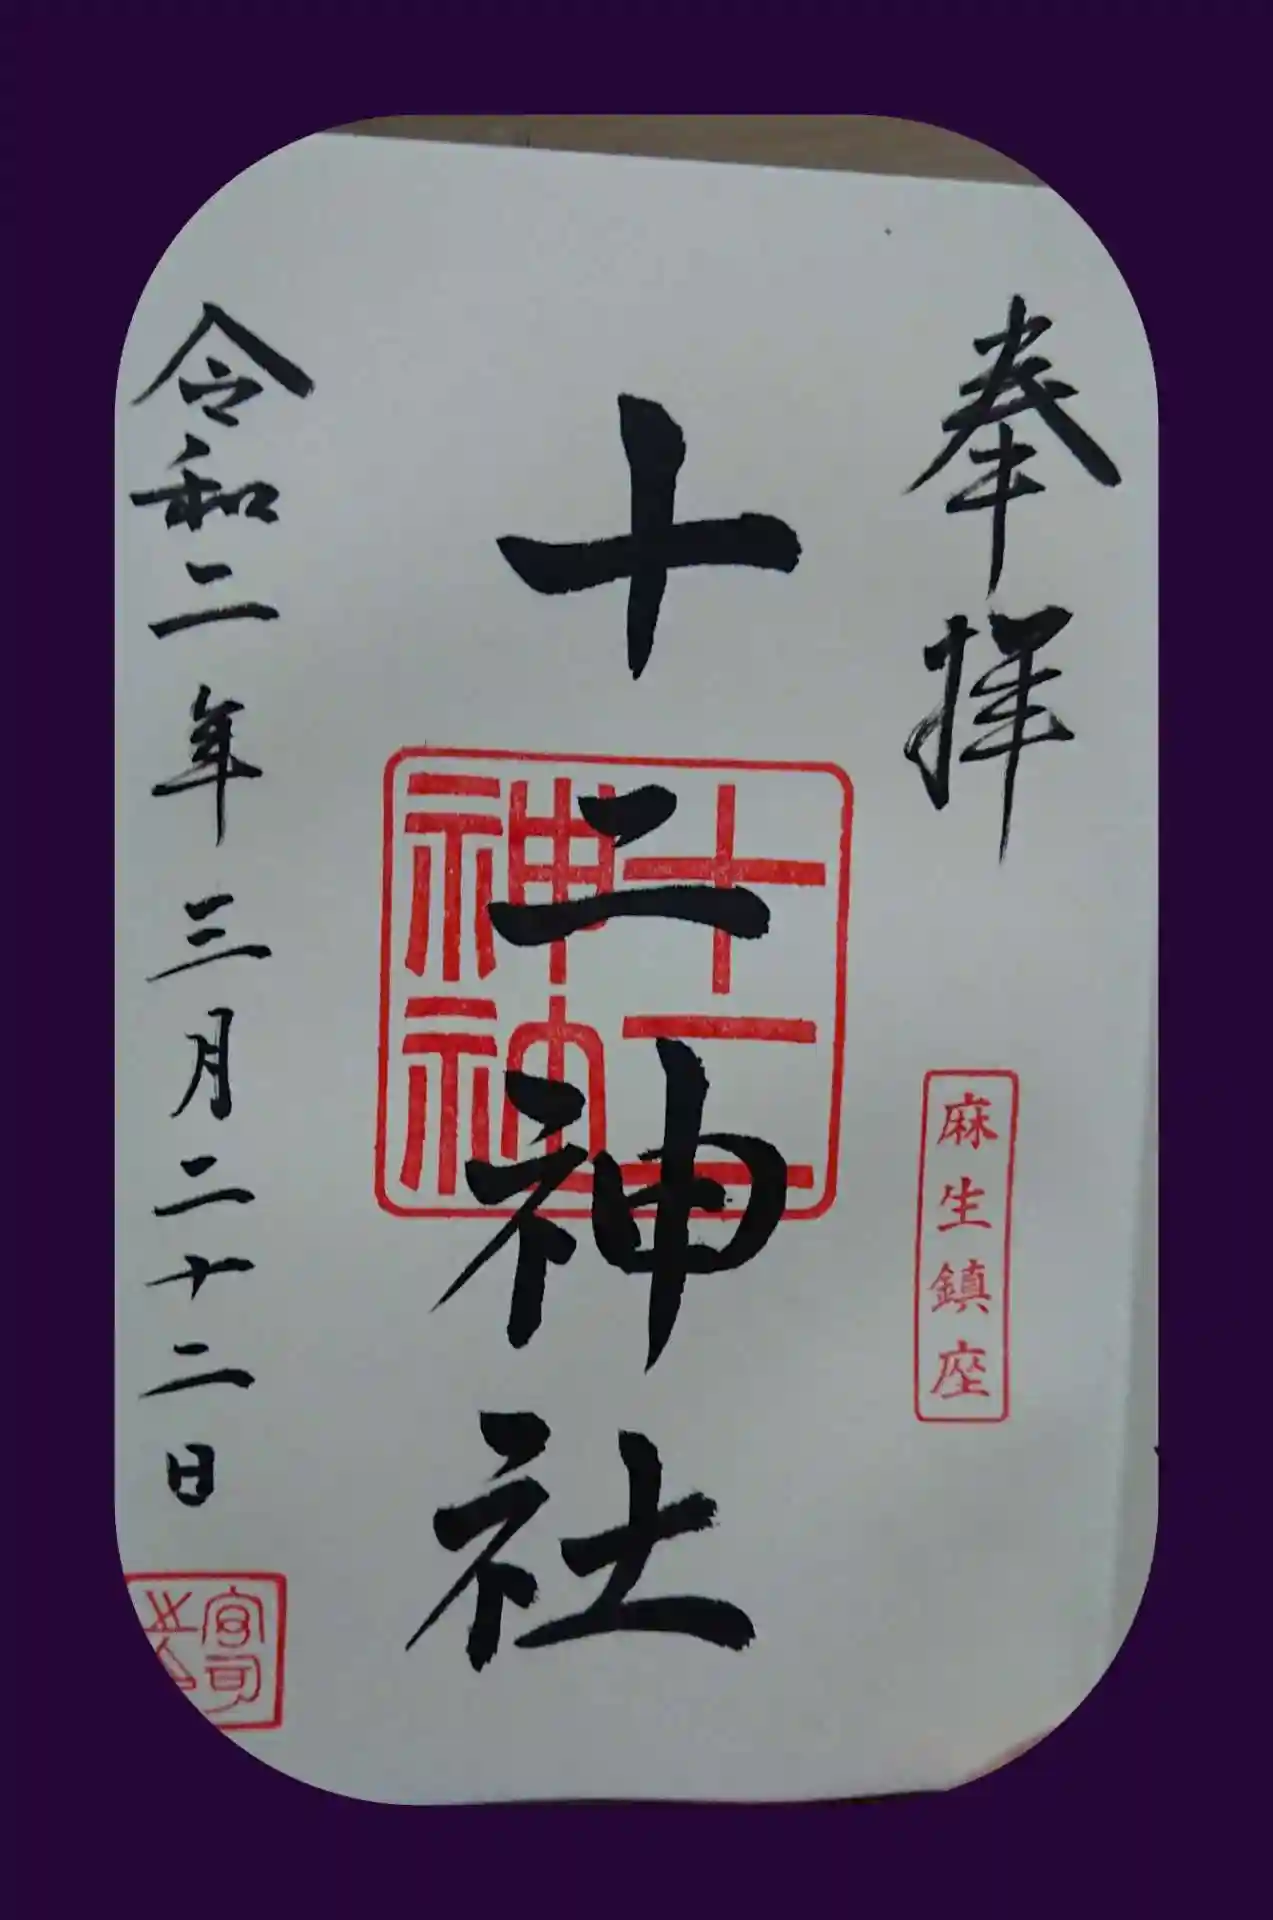 奉拝
麻生鎮座
十二神社
十二
神社
令和二年三月二十二日
宮司